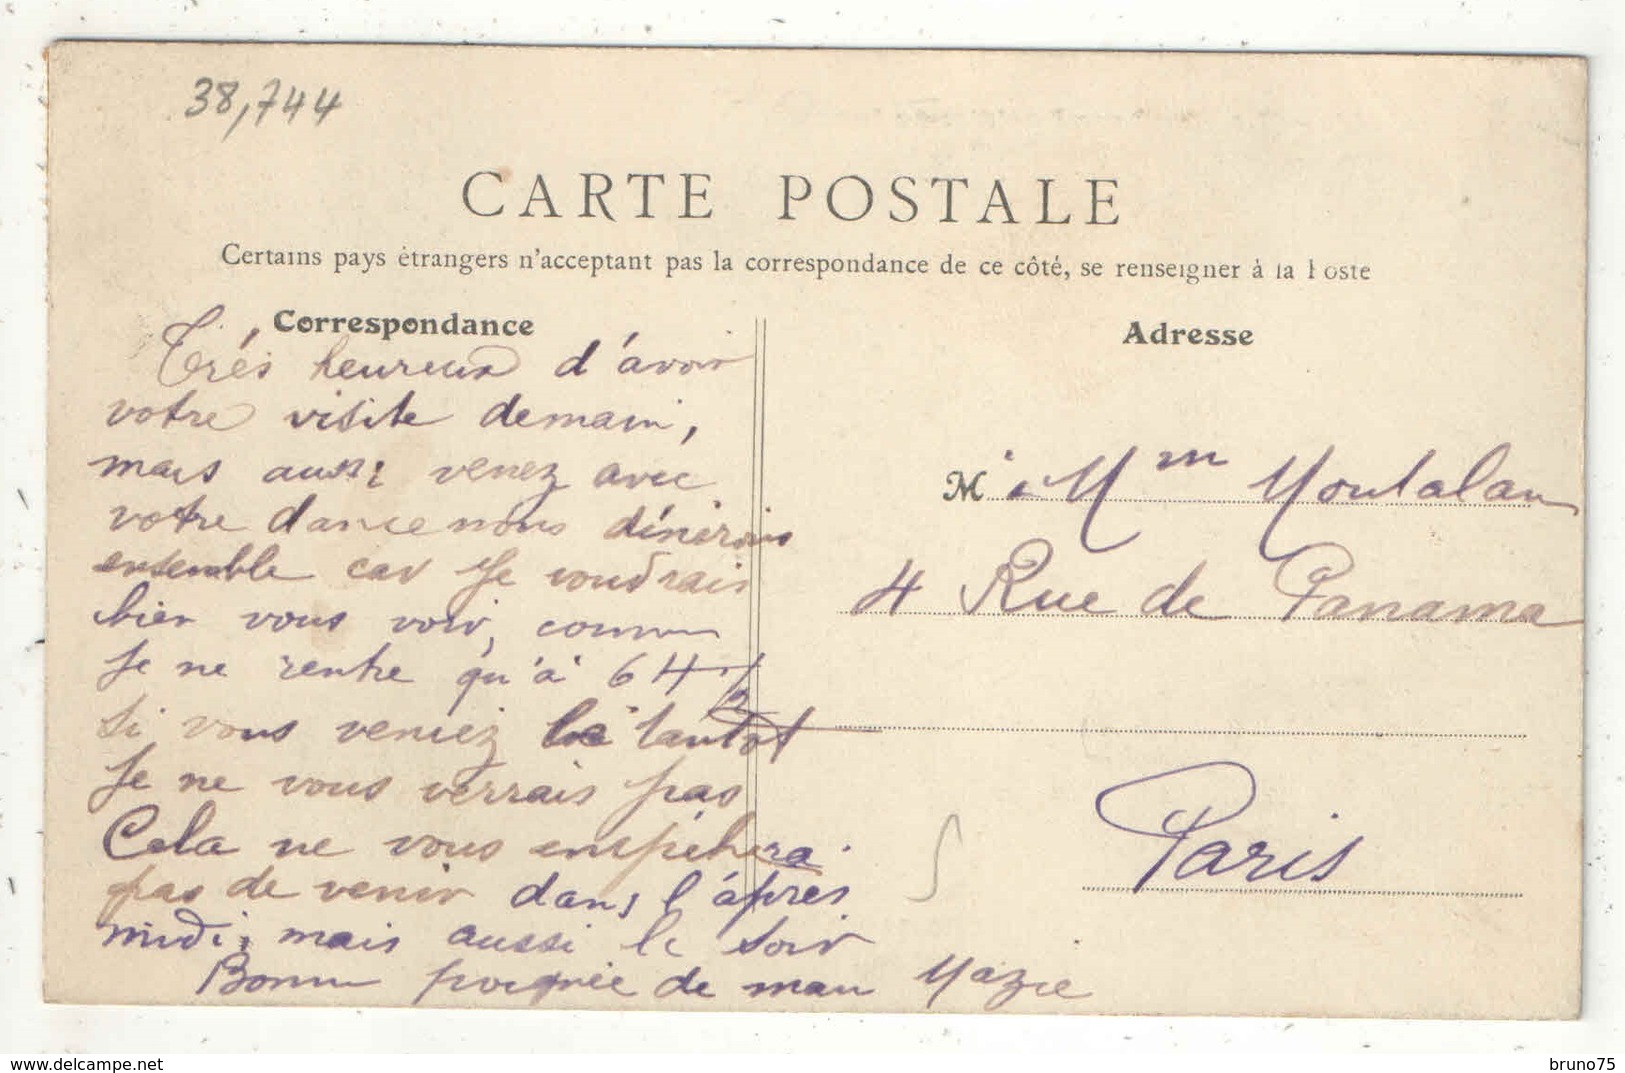 38,744
CARTE POSTALE
Certains pays étrangers n'acceptent pas la correspondance de ce côté, se renseigner à la Poste
Correspondance
Adresse
Trés heureux d'avoir
votre visite demain,
mais aussi venez avec
votre dance nous dînerais
ensemble car Je voudrais
bien vous voir, comme
Je ne rentre qu'à 6 H 1/2
si vous veniez tantot
Je ne vous verrais pas
Cela ne vous empêhera
pas de venir dans l'áprés
midi, mais aussi le soir
Bonne poignée de main
M Mm Montalan
4 Rue de Panama
Paris
delcampe.net
bruno75